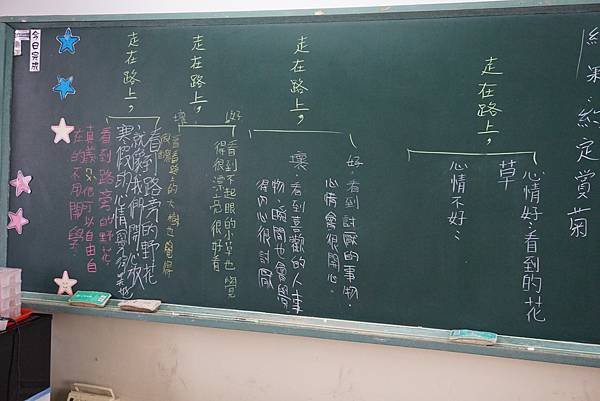 果,約定賞菊
走在路上，
心情好：看到的花
草
心情不好：
走在路上，
好：看到討厭的事物，
心情會很開心。
壞：看到喜歡的人事
物，瞬間也會覺
得內心很討厭
走在路上，
好
看到不起眼的小草也覺
得很漂亮很好看
壞
看看路上的大樹也覺得
很醜
走在路上，
看到路旁的野花
就跟我們開心放
寒假的心情
看到路旁的野花，
他可以自由自
在的不用開學。
今日完成